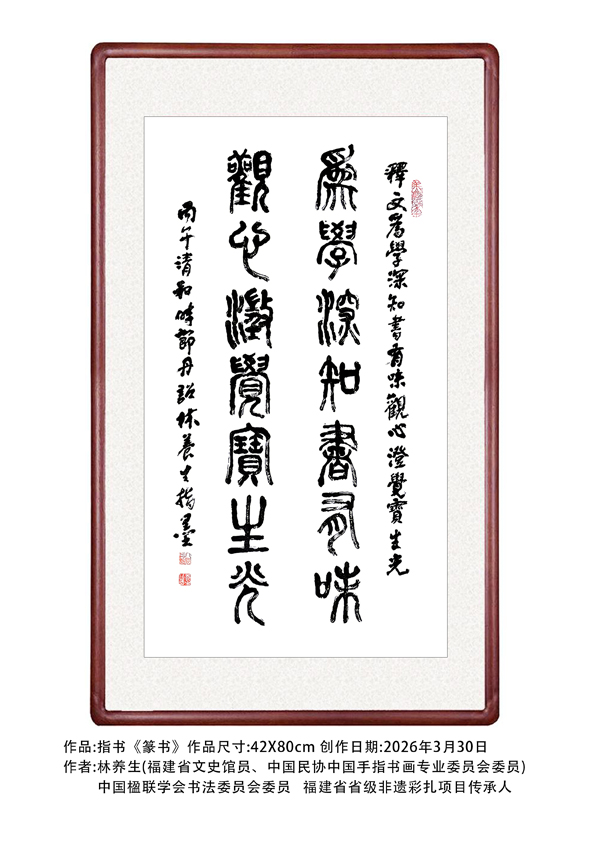 釋文為學深知書有味觀心澄覺寶生光
為學深知書有味
觀心澂覺寶生光
丙午清和時節丹詔林養生指墨
作品:指书《篆书》作品尺寸:42X80cm 创作日期:2026年3月30日
作者:林养生(福建省文史馆员、中国民协中国手指书画专业委员会委员)
中国楹联学会书法委员会委员 福建省省级非遗彩扎项目传承人